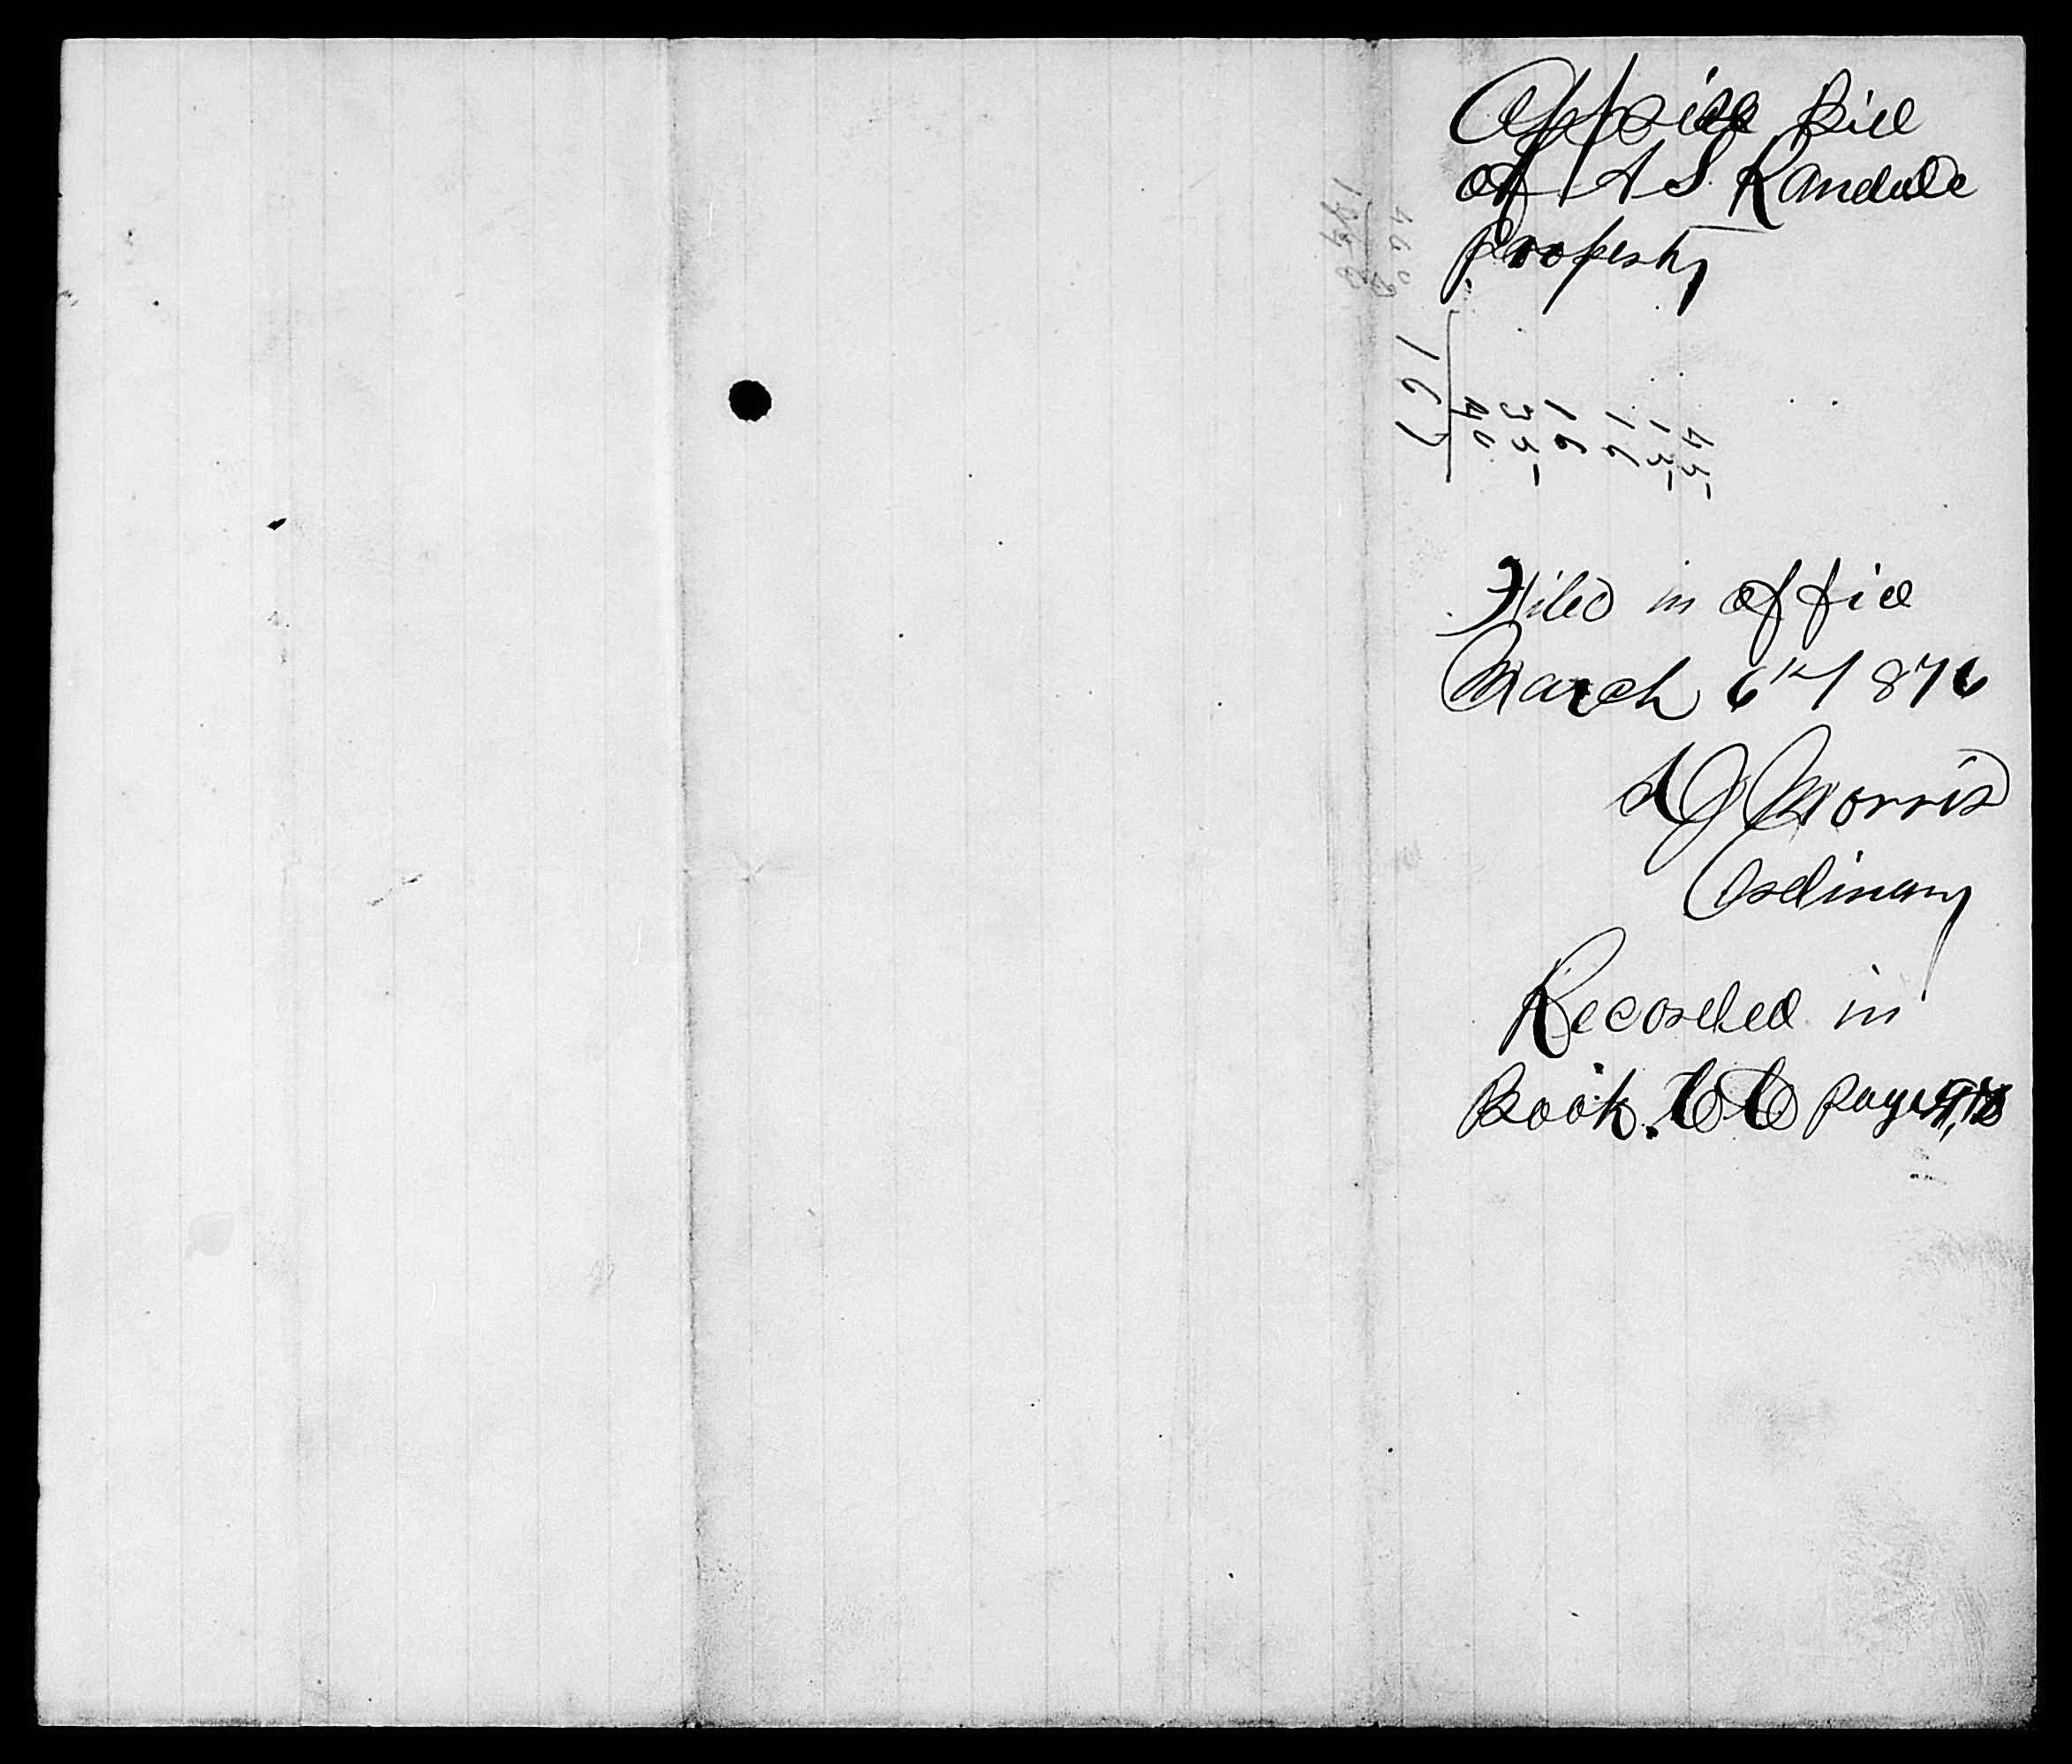 Apprise Bill
of A S Randall
Property
45
15
16
16
35
40
167
Filed in office
March 6th 1876
A J Morris
Ordinary
Recorded in
Book. CC page